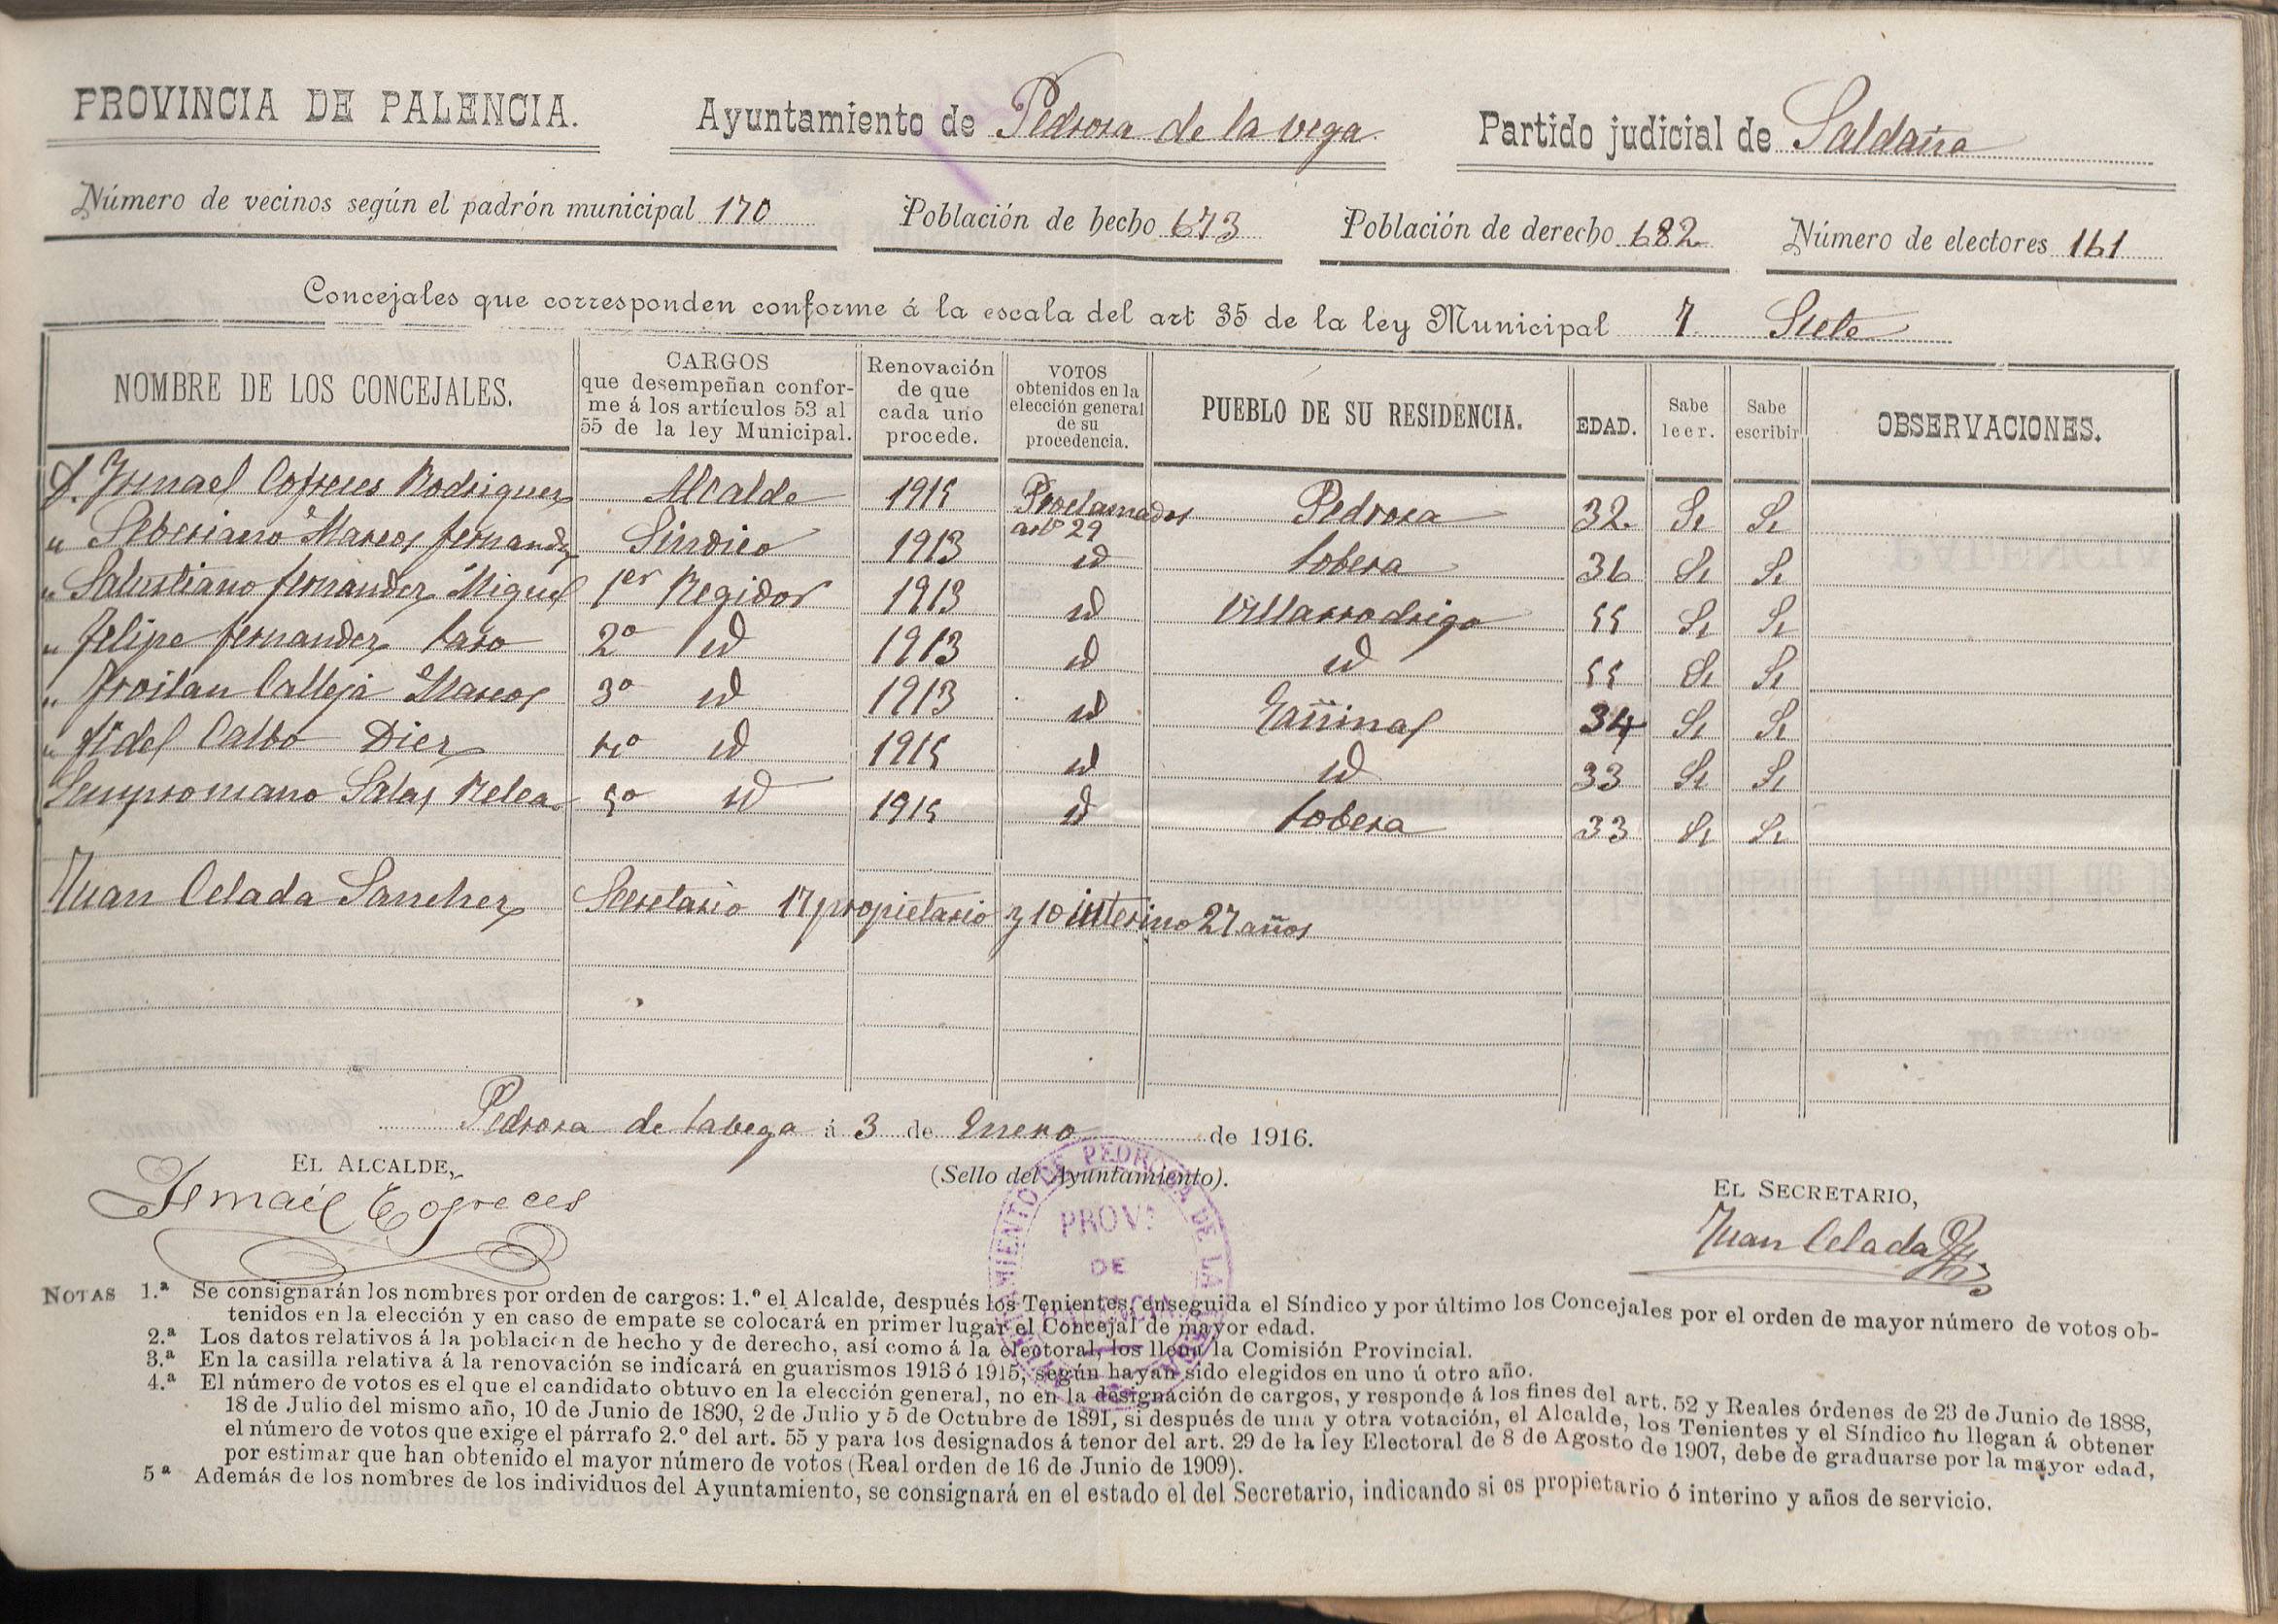 PROVINCIA DE PALENCIA. Ayuntamiento de Pedrosa de la vega. Partido judicial de Saldaña
Número de vecinos según el padrón municipal 170 Población de hecho 673 Población de derecho 682 Número de electores 161
Concejales que corresponden conforme á la escala del art 35 de la ley Municipal 7 Siete
NOMBRE DE LOS CONCEJALES. CARGOS que desempeñan conforme á los artículos 53 al 55 de la ley Municipal. Renovación de que cada uno procede. VOTOS obtenidos en la elección general de su procedencia. PUEBLO DE SU RESIDENCIA. EDAD. Sabe leer. Sabe escribir OBSERVACIONES.
D. Ismael Cofreces Rodriguez Alcalde 1915 Proclamados artº 29 Pedrosa 32 Si Si
" Seberiano Marcos fernandz Sindico 1913 id Lobera 36 Si Si
" Salustiano fernandez Miguel 1er Regidor 1913 id Villarrodrigo 55 Si Si
" felipe fernandez Laso 2º id 1913 id id 55 Si Si
" froilan Calleja Marcos 3º id 1913 id Gañinas 34 Si Si
" fidel Calbo Diez 4º id 1915 id id 33 Si Si
Sempromiano Salas Relea 5º id 1915 id Lobera 33 Si Si
Juan Celada Sanchez Secretario 17 propietario y 10 interino 27 años
Pedrosa de labega á 3 de Enero de 1916.
EL ALCALDE,
(Sello del Ayuntamiento).
EL SECRETARIO,
Ismael Cofreces
Juan Celada
AYUNTAMIENTO DE PEDROSA DE LA VEGA
PROVª
DE
PALENCIA
NOTAS 1.ª Se consignarán los nombres por orden de cargos: 1.º el Alcalde, después los Tenientes, enseguida el Síndico y por último los Concejales por el orden de mayor número de votos ob-
tenidos en la elección y en caso de empate se colocará en primer lugar el Concejal de mayor edad.
2.ª Los datos relativos á la población de hecho y de derecho, así como á la electoral, los llena la Comisión Provincial.
3.ª En la casilla relativa á la renovación se indicará en guarismos 1913 ó 1915, según hayan sido elegidos en uno ú otro año.
4.ª El número de votos es el que el candidato obtuvo en la elección general, no en la designación de cargos, y responde á los fines del art. 52 y Reales órdenes de 23 de Junio de 1888,
18 de Julio del mismo año, 10 de Junio de 1890, 2 de Julio y 5 de Octubre de 1891, si después de una y otra votación, el Alcalde, los Tenientes y el Síndico no llegan á obtener
el número de votos que exige el párrafo 2.º del art. 55 y para los designados á tenor del art. 29 de la ley Electoral de 8 de Agosto de 1907, debe de graduarse por la mayor edad,
por estimar que han obtenido el mayor número de votos (Real orden de 16 de Junio de 1909).
5ª Además de los nombres de los individuos del Ayuntamiento, se consignará en el estado el del Secretario, indicando si es propietario ó interino y años de servicio.